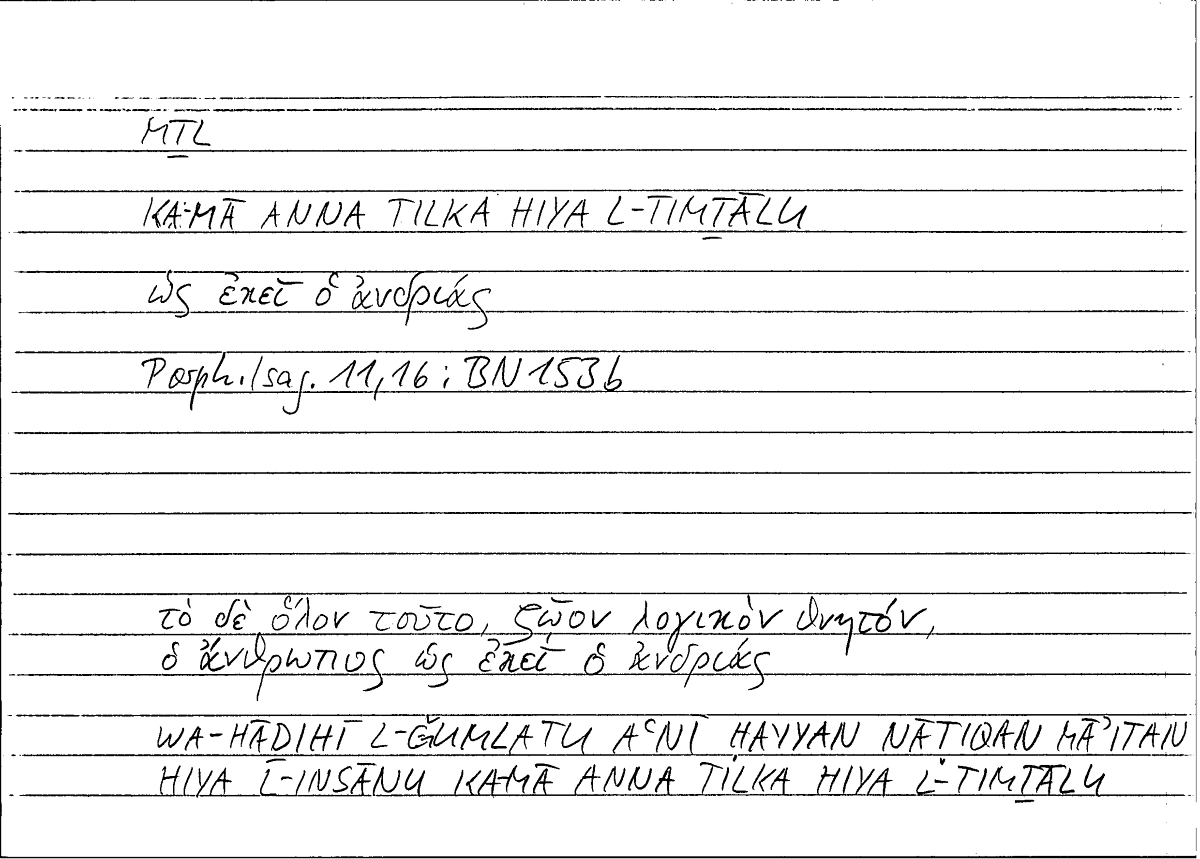 MṮL
KA-MĀ ANNA TILKA HIYA L-TIMṮĀLU
ὡς ἐκεῖ ὁ ἀνδριάς
Porph. Isag. 11,16; BN 153b
τὸ δὲ ὅλον τοῦτο, ζῷον λογικὸν θνητόν,
ὁ ἄνθρωπος ὡς ἐκεῖ ὁ ἀνδριάς
WA-HĀDIHĪ L-ǦUMLATU AʿNĪ HAYYAN NĀTIQAN MĀʾITAN
HIYA L-INSĀNU KA-MĀ ANNA TILKA HIYA L-TIMṮĀLU